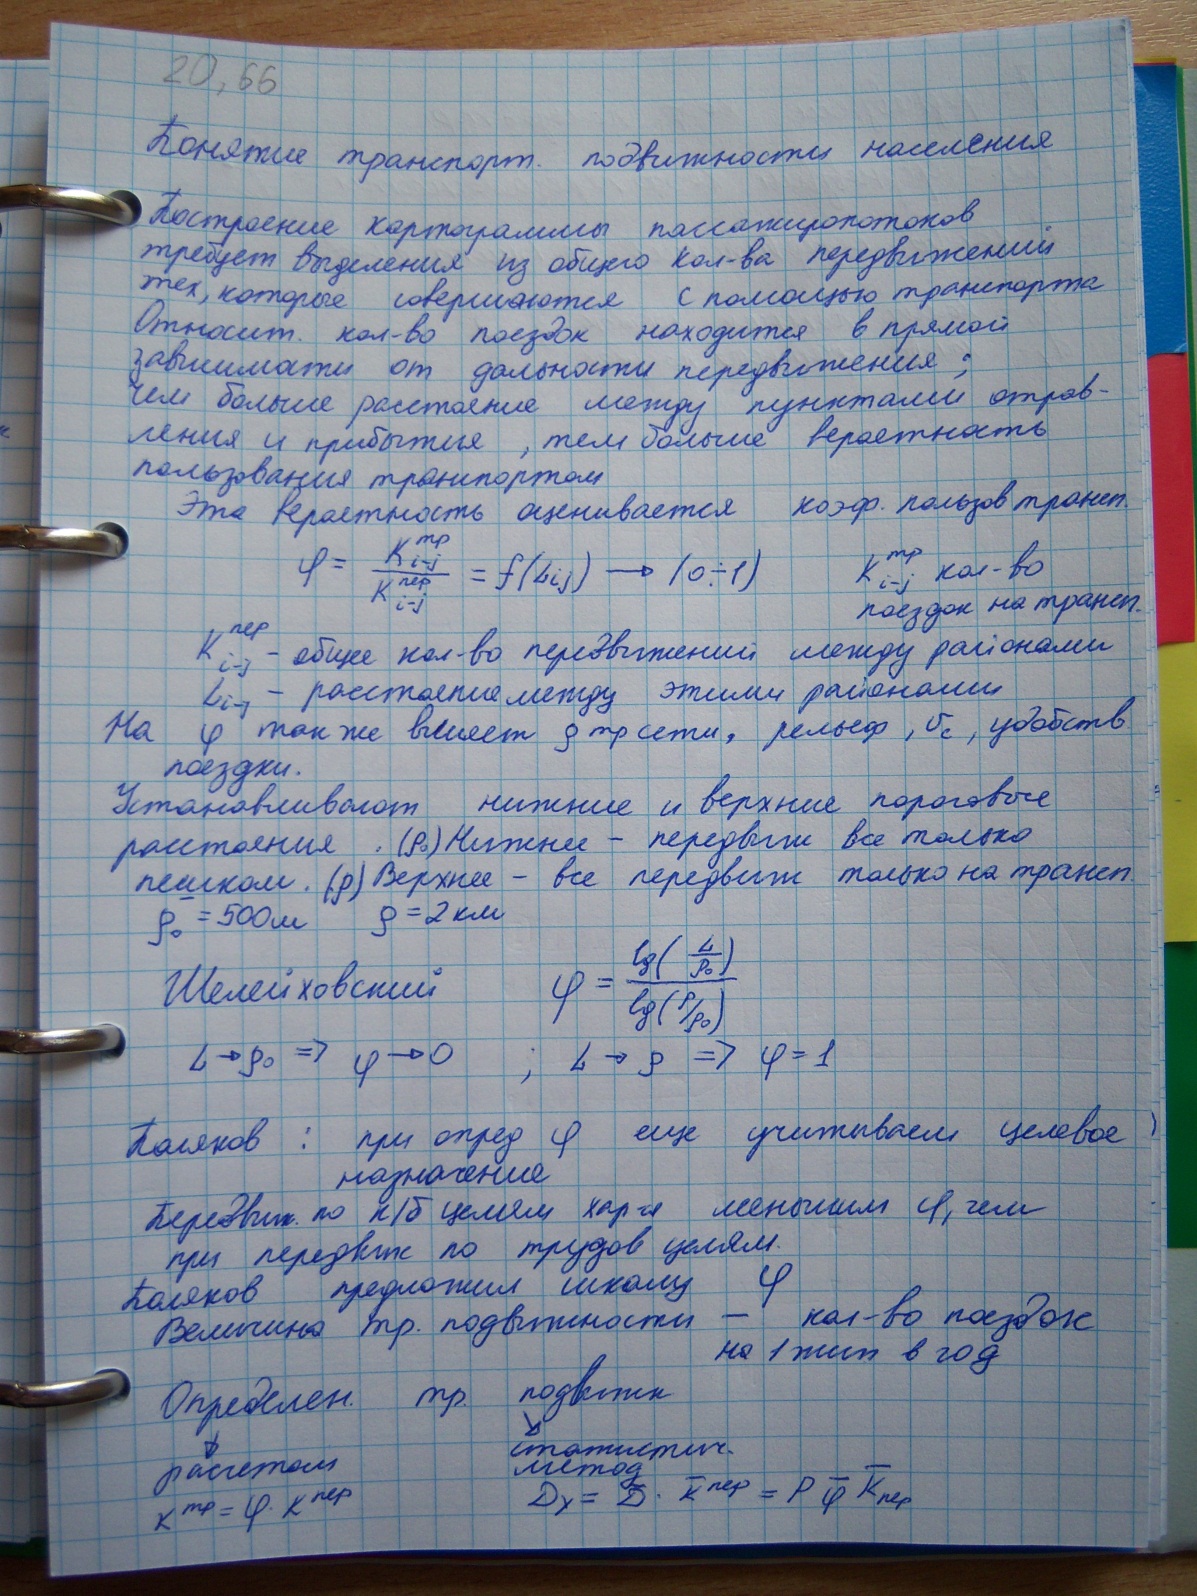 20, 66
Понятие транспорт. подвижности населения
Построение картограммы пассажиропотоков
требует выделения из общего кол-ва передвижений
тех, которые совершаются с помощью транспорта
Относит. кол-во поездок находится в прямой
зависимости от дальности передвижения;
чем больше расстояние между пунктами отправ-
ления и прибытия, тем больше вероятность
пользования транспортом
Эта вероятность оценивается коэф. пользов трансп.
φ = K^тр_{i-j} / K^пер_{i-j} = f(Lij) → (0÷1) K^тр_{i-j} кол-во
поездок на трансп.
K^пер_{i-j} - общее кол-во передвижений между районами
L_{i-j} - расстояние между этими районами
На φ так же влияет ρ тр сети, рельеф, υc, удобств
поездки.
Устанавливают нижние и верхние пороговые
расстояния. (ρ₀) Нижнее - передвиж все только
пешком. (ρ) Верхнее - все передвиж только на трансп.
ρ₀ = 500м ρ = 2 км
Шелейховский φ = lg(L/ρ₀) / lg(ρ/ρ₀)
L → ρ₀ => φ → 0 ; L → ρ => φ = 1
Поляков : при опред φ еще учитываем целевое
назначение
Передвиж. по к/б целям хар-я меньшим φ, чем
при передвиж по трудов целям.
Поляков предложил шкалу φ
Величина тр. подвижности - кол-во поездок
на 1 жит в год
Определен. тр. подвижн
↓ расчетом ↘ статистич.
метод
K^тр = φ · K^пер = P φ̄ K̄пер